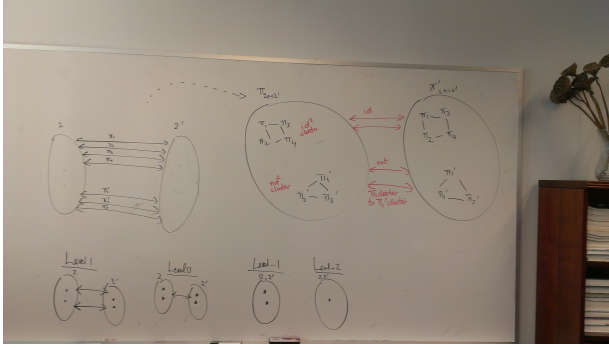 2
2'
π₁
π₂
π₃
π₄
π₁'
π₂'
π₃'
Π₂↔₂'
π₁ π₃
π₂ π₄
id
cluster
not
cluster
π₁'
π₂' π₃'
id
not
π cluster
to π' cluster
π₁ π₃
π₂ π₄
Level 1
2
2'
Level 0
2
2'
Level -1
2,2'
Level -2
2,2'